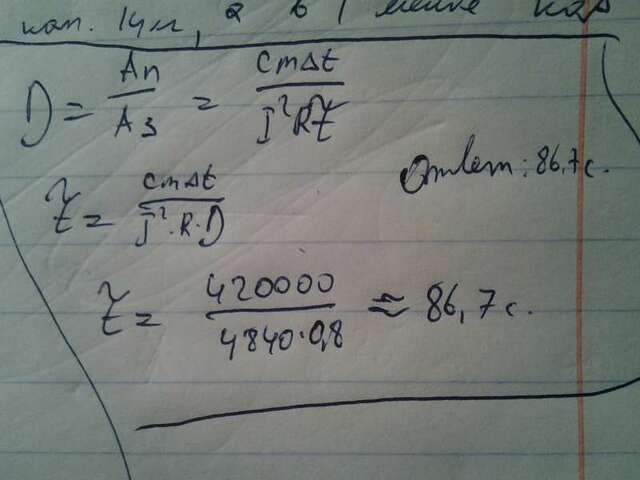 кап. 2 в 1
D = Aп/Aз = cmΔt/I²Rτ
τ = cmΔt/I²·R·D
Ответ: 86,7 с.
τ = 420000/4840·0,8 ≈ 86,7 с.